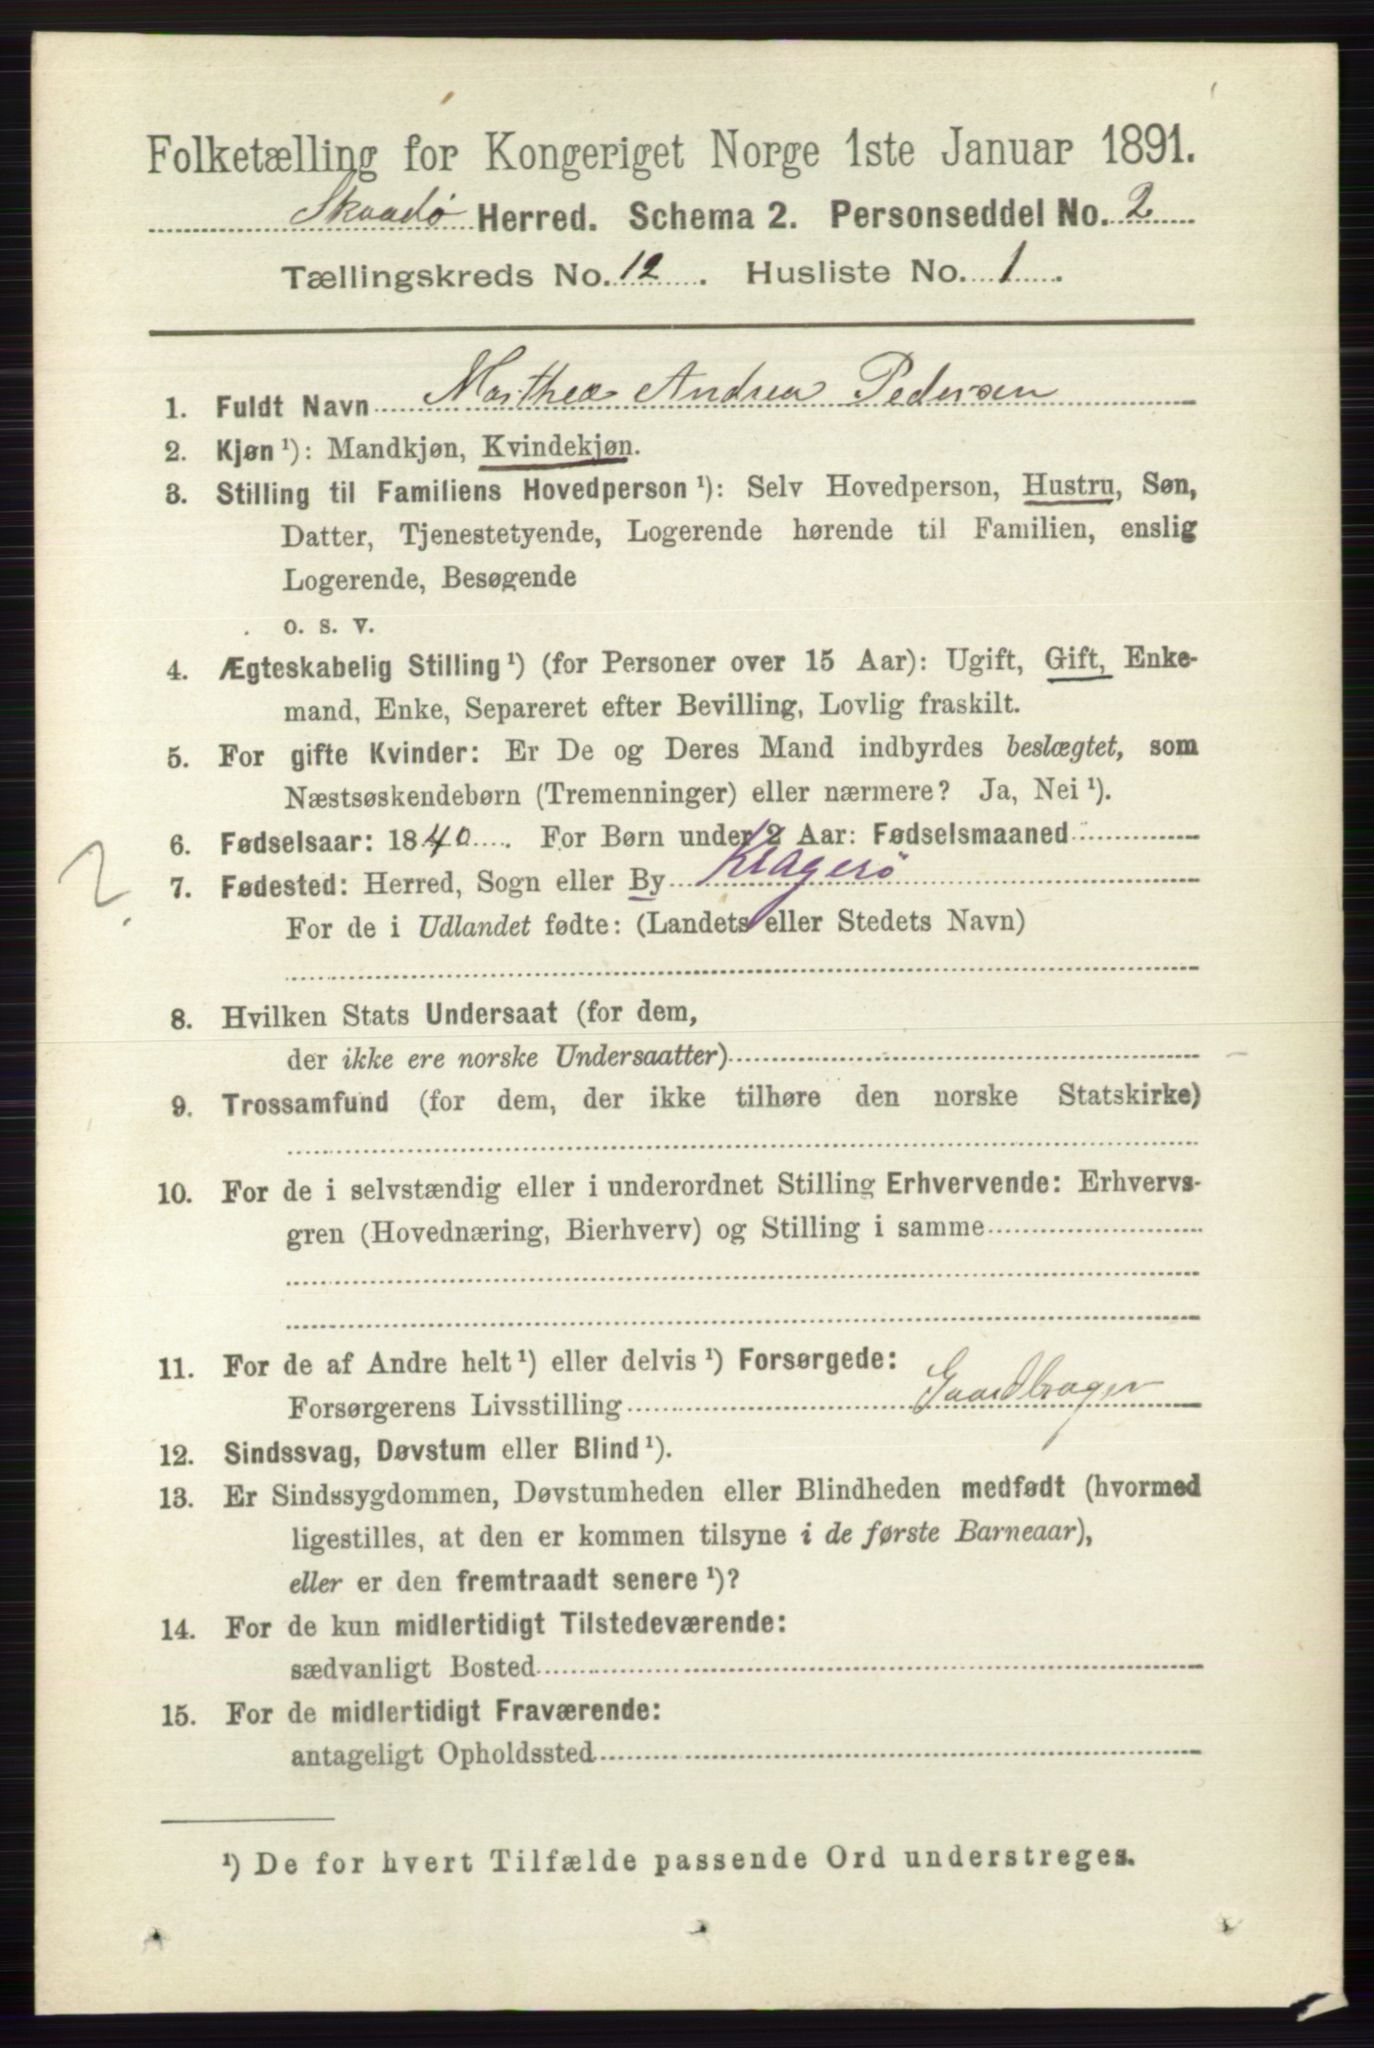 Folketælling for Kongeriget Norge 1ste Januar 1891.
Skaadø Herred. Schema 2. Personseddel No. 2
Tællingskreds No. 12. Husliste No. 1.
1. Fuldt Navn Marthea Andrea Pedersen
2. Kjøn ¹): Mandkjøn, Kvindekjøn.
3. Stilling til Familiens Hovedperson ¹): Selv Hovedperson, Hustru, Søn,
Datter, Tjenestetyende, Logerende hørende til Familien, enslig
Logerende, Besøgende
o. s. v.
4. Ægteskabelig Stilling ¹) (for Personer over 15 Aar): Ugift, Gift, Enke-
mand, Enke, Separeret efter Bevilling, Lovlig fraskilt.
5. For gifte Kvinder: Er De og Deres Mand indbyrdes beslægtet, som
Næstsøskendebørn (Tremenninger) eller nærmere? Ja, Nei ¹).
6. Fødselsaar: 1840. For Børn under 2 Aar: Fødselsmaaned
?
7. Fødested: Herred, Sogn eller By Kragerö
For de i Udlandet fødte: (Landets eller Stedets Navn)
8. Hvilken Stats Undersaat (for dem,
der ikke ere norske Undersaatter)
9. Trossamfund (for dem, der ikke tilhøre den norske Statskirke)
10. For de i selvstændig eller i underordnet Stilling Erhvervende: Erhvervs-
gren (Hovednæring, Bierhverv) og Stilling i samme
11. For de af Andre helt ¹) eller delvis ¹) Forsørgede:
Forsørgerens Livsstilling Gaardbruger
12. Sindssvag, Døvstum eller Blind ¹).
13. Er Sindssygdommen, Døvstumheden eller Blindheden medfødt (hvormed
ligestilles, at den er kommen tilsyne i de første Barneaar),
eller er den fremtraadt senere ¹)?
14. For de kun midlertidigt Tilstedeværende:
sædvanligt Bosted
15. For de midlertidigt Fraværende:
antageligt Opholdssted
¹) De for hvert Tilfælde passende Ord understreges.